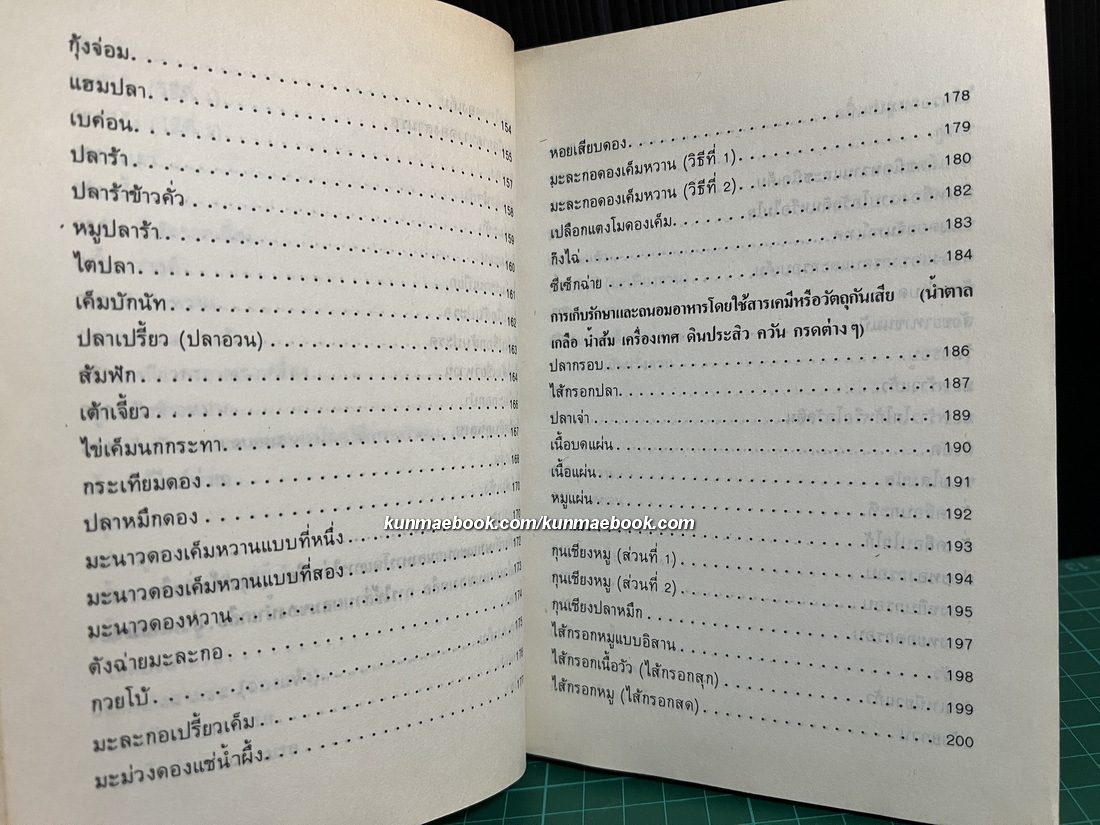 กุ้งจ่อม. . . . . . . . . . . . . . . . . . . . 154
แฮมปลา. . . . . . . . . . . . . . . . . . . . 155
เบค่อน. . . . . . . . . . . . . . . . . . . . 157
ปลาร้า. . . . . . . . . . . . . . . . . . . . 158
ปลาร้าข้าวคั่ว . . . . . . . . . . . . . . . . . . 159
หมูปลาร้า. . . . . . . . . . . . . . . . . . . . 160
ไตปลา. . . . . . . . . . . . . . . . . . . . 161
เค็มบักนัท . . . . . . . . . . . . . . . . . . . . 162
ปลาเปรี้ยว (ปลาอวน) . . . . . . . . . . . . . . 163
ส้มฟัก. . . . . . . . . . . . . . . . . . . . 164
เต้าเจี้ยว . . . . . . . . . . . . . . . . . . . . 166
ไข่เค็มนกกระทา. . . . . . . . . . . . . . . . 167
กระเทียมดอง . . . . . . . . . . . . . . . . . . 168
ปลาหมึกดอง . . . . . . . . . . . . . . . . . . 170
มะนาวดองเค็มหวานแบบที่หนึ่ง. . . . . . . . . .
มะนาวดองเค็มหวานแบบที่สอง . . . . . . . . . . 172
มะนาวดองหวาน . . . . . . . . . . . . . . . . 173
ตังฉ่ายมะละกอ . . . . . . . . . . . . . . . . 174
กวยโบ๊ . . . . . . . . . . . . . . . . . . . . 175
มะละกอเปรี้ยวเค็ม . . . . . . . . . . . . . . . . 176
มะม่วงดองแช่น้ำผึ้ง. . . . . . . . . . . . . . . . 177
หอยเสียบดอง. . . . . . . . . . . . . . . . . . 178
มะละกอดองเค็มหวาน (วิธีที่ 1). . . . . . . . . . 179
มะละกอดองเค็มหวาน (วิธีที่ 2). . . . . . . . . . 180
เปลือกแตงโมดองเค็ม. . . . . . . . . . . . . . 182
กิงไฉ่ . . . . . . . . . . . . . . . . . . . . 183
ซีเซ็กฉ่าย . . . . . . . . . . . . . . . . . . . . 184
การเก็บรักษาและถนอมอาหารโดยใช้สารเคมีหรือวัตถุกันเสีย (น้ำตาล
เกลือ น้ำส้ม เครื่องเทศ ดินประสิว ควัน กรดต่าง ๆ)
ปลากรอบ . . . . . . . . . . . . . . . . . . . . 186
ไส้กรอกปลา. . . . . . . . . . . . . . . . . . 187
ปลาเจ่า . . . . . . . . . . . . . . . . . . . . 189
เนื้อบดแผ่น . . . . . . . . . . . . . . . . . . 190
เนื้อแผ่น. . . . . . . . . . . . . . . . . . . . 191
หมูแผ่น . . . . . . . . . . . . . . . . . . . . 192
kunmaebook.com/kunmaebook.com
. . . . . . . . . . . . . . . . . . . . 193
กุนเชียงหมู (ส่วนที่ 1) . . . . . . . . . . . . . . 194
กุนเชียงหมู (ส่วนที่ 2) . . . . . . . . . . . . . . 195
กุนเชียงปลาหมึก . . . . . . . . . . . . . . . . 197
ไส้กรอกหมูแบบอิสาน . . . . . . . . . . . . . . 198
ไส้กรอกเนื้อวัว (ไส้กรอกสุก) . . . . . . . . . . . . 199
ไส้กรอกหมู (ไส้กรอกสด). . . . . . . . . . . . . . 200